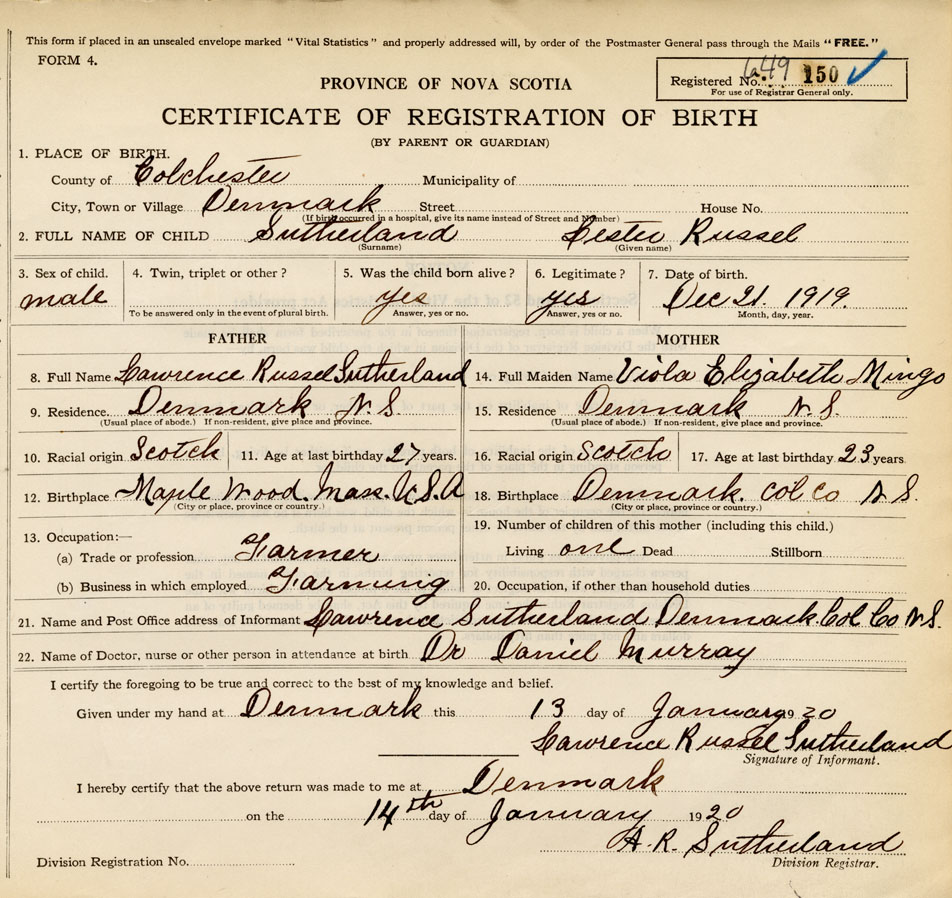 This form if placed in an unsealed envelope marked "Vital Statistics" and properly addressed will, by order of the Postmaster General pass through the Mails "FREE."
FORM 4.
Registered No. 6a49 150
For use of Registrar General only.
PROVINCE OF NOVA SCOTIA
CERTIFICATE OF REGISTRATION OF BIRTH
(BY PARENT OR GUARDIAN)
1. PLACE OF BIRTH.
County of Colchester Municipality of
City, Town or Village Denmark Street House No.
(If birth occurred in a hospital, give its name instead of Street and Number)
2. FULL NAME OF CHILD Sutherland Lester Russel
(Surname) (Given name)
3. Sex of child. 4. Twin, triplet or other? 5. Was the child born alive? 6. Legitimate? 7. Date of birth.
male yes yes Dec 21. 1919.
To be answered only in the event of plural birth. Answer, yes or no. Answer, yes or no. Month, day, year.
FATHER MOTHER
8. Full Name Lawrence Russel Sutherland 14. Full Maiden Name Viola Elizabeth Mingo
9. Residence. Denmark N.S. 15. Residence. Denmark N.S.
(Usual place of abode.) If non-resident, give place and province. (Usual place of abode.) If non-resident, give place and province.
10. Racial origin Scotch 11. Age at last birthday 27 years. 16. Racial origin Scotch 17. Age at last birthday 23 years.
12. Birthplace Maple Wood. Mass. U.S.A 18. Birthplace Denmark. Col Co N.S.
(City or place, province or country.) (City or place, province or country.)
13. Occupation:— 19. Number of children of this mother (including this child.)
(a) Trade or profession Farmer Living one Dead Stillborn
(b) Business in which employed Farming 20. Occupation, if other than household duties
21. Name and Post Office address of Informant Lawrence Sutherland Denmark. Col Co N.S.
22. Name of Doctor, nurse or other person in attendance at birth Dr Daniel Murray
I certify the foregoing to be true and correct to the best of my knowledge and belief.
Given under my hand at Denmark this 13 day of January 1920
Lawrence Russel Sutherland
Signature of Informant.
I hereby certify that the above return was made to me at Denmark
on the 14th day of January 1920
A. R. Sutherland
Division Registration No. Division Registrar.